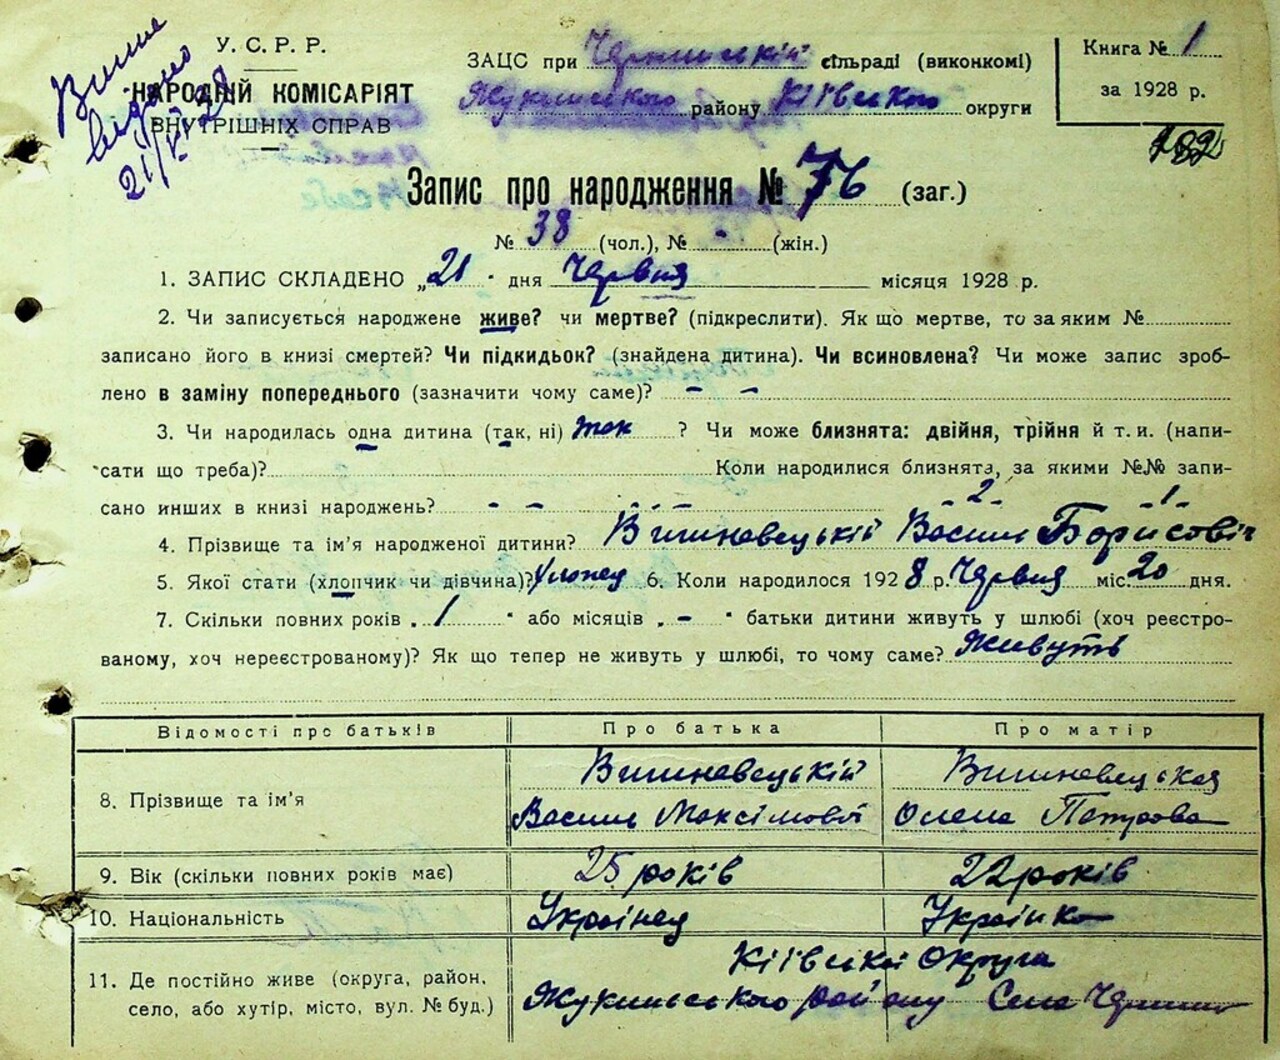 Виписъ
видано
21/VI 28
У. С. Р. Р.
НАРОДНІЙ КОМІСАРІЯТ
ВНУТРІШНІХ СПРАВ
ЗАЦС при Чернинській сільраді (виконкомі)
Жукинського району Київського округи
Книга № 1
за 1928 р.
182
Запис про народження № 76 (заг.)
№ 38 (чол.), № - (жін.)
1. ЗАПИС СКЛАДЕНО „21" дня Червня місяця 1928 р.
2. Чи записується народжене живе? чи мертве? (підкреслити). Як що мертве, то за яким №
записано його в книзі смертей? Чи підкидьок? (знайдена дитина). Чи всиновлена? Чи може запис зроб-
лено в заміну попереднього (зазначити чому саме)? - -
3. Чи народилась одна дитина (так, ні) так ? Чи може близнята: двійня, трійня й т. и. (напи-
сати що треба)? Коли народилися близнята, за якими №№ запи-
сано инших в книзі народжень? - - - - - - 2 - - 1 -
4. Прізвище та ім'я народженої дитини? Вишневецькій Василь Борисовіч
5. Якої стати (хлопчик чи дівчина)? Хлопец 6. Коли народилося 1928 р. Червня міс. 20 дня.
7. Скільки повних років „1" або місяців „-" батьки дитини живуть у шлюбі (хоч реєстро-
ваному, хоч нереєстрованому)? Як що тепер не живуть у шлюбі, то чому саме? Живуть
Відомості про батьків Про батька Про матір
8. Прізвище та ім'я Вишневецькій Василь Максімовіч Вишневецькая Олена Петрова
9. Вік (скільки повних років має) 25 років 22 років
10. Національність Українец Українка
11. Де постійно живе (округа, район, Київська Округа
село, або хутір, місто, вул. № буд.) Жукинського району Село Чернин